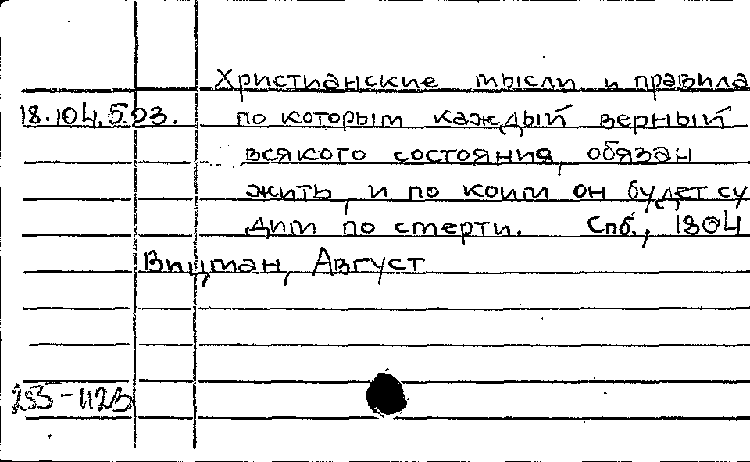 Христианские мысли и правила
18.104.5.93. по которым каждый верный
всякого состояния, обязан
жить, и по коим он будет су
дим по смерти. Спб., 1804
Вицман, Август
255-1123